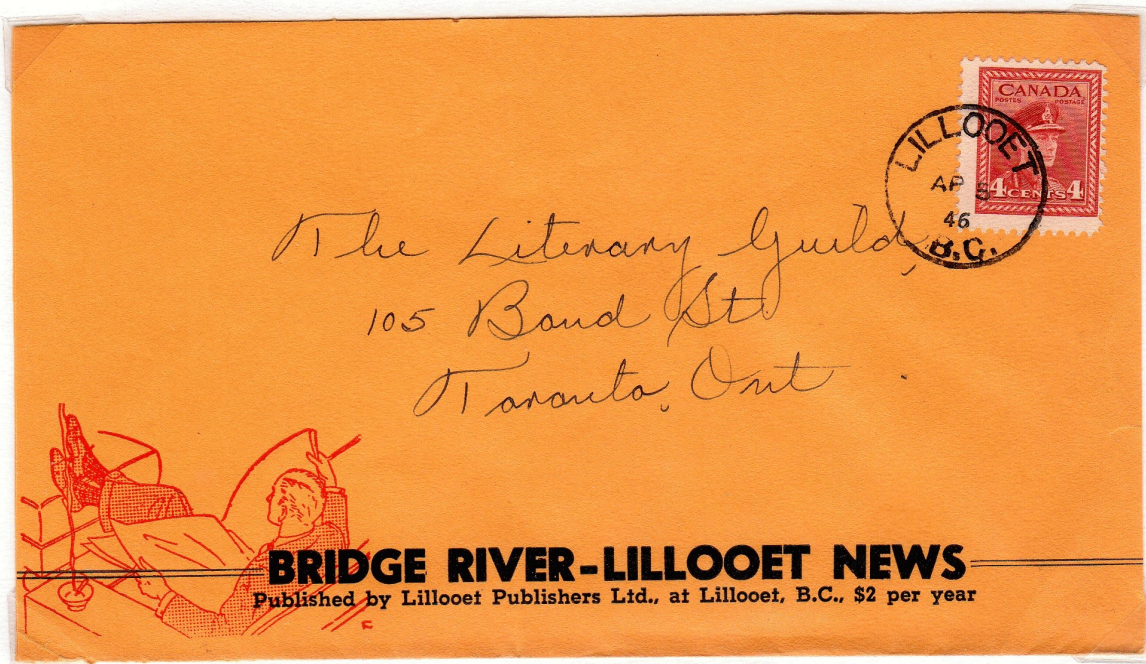 CANADA
POSTES POSTAGE
4 CENTS 4
LILLOOET
AP 5
46
B.C.
The Literary Guild,
105 Bond St.
Toronto, Ont
BRIDGE RIVER-LILLOOET NEWS
Published by Lillooet Publishers Ltd., at Lillooet, B.C., $2 per year